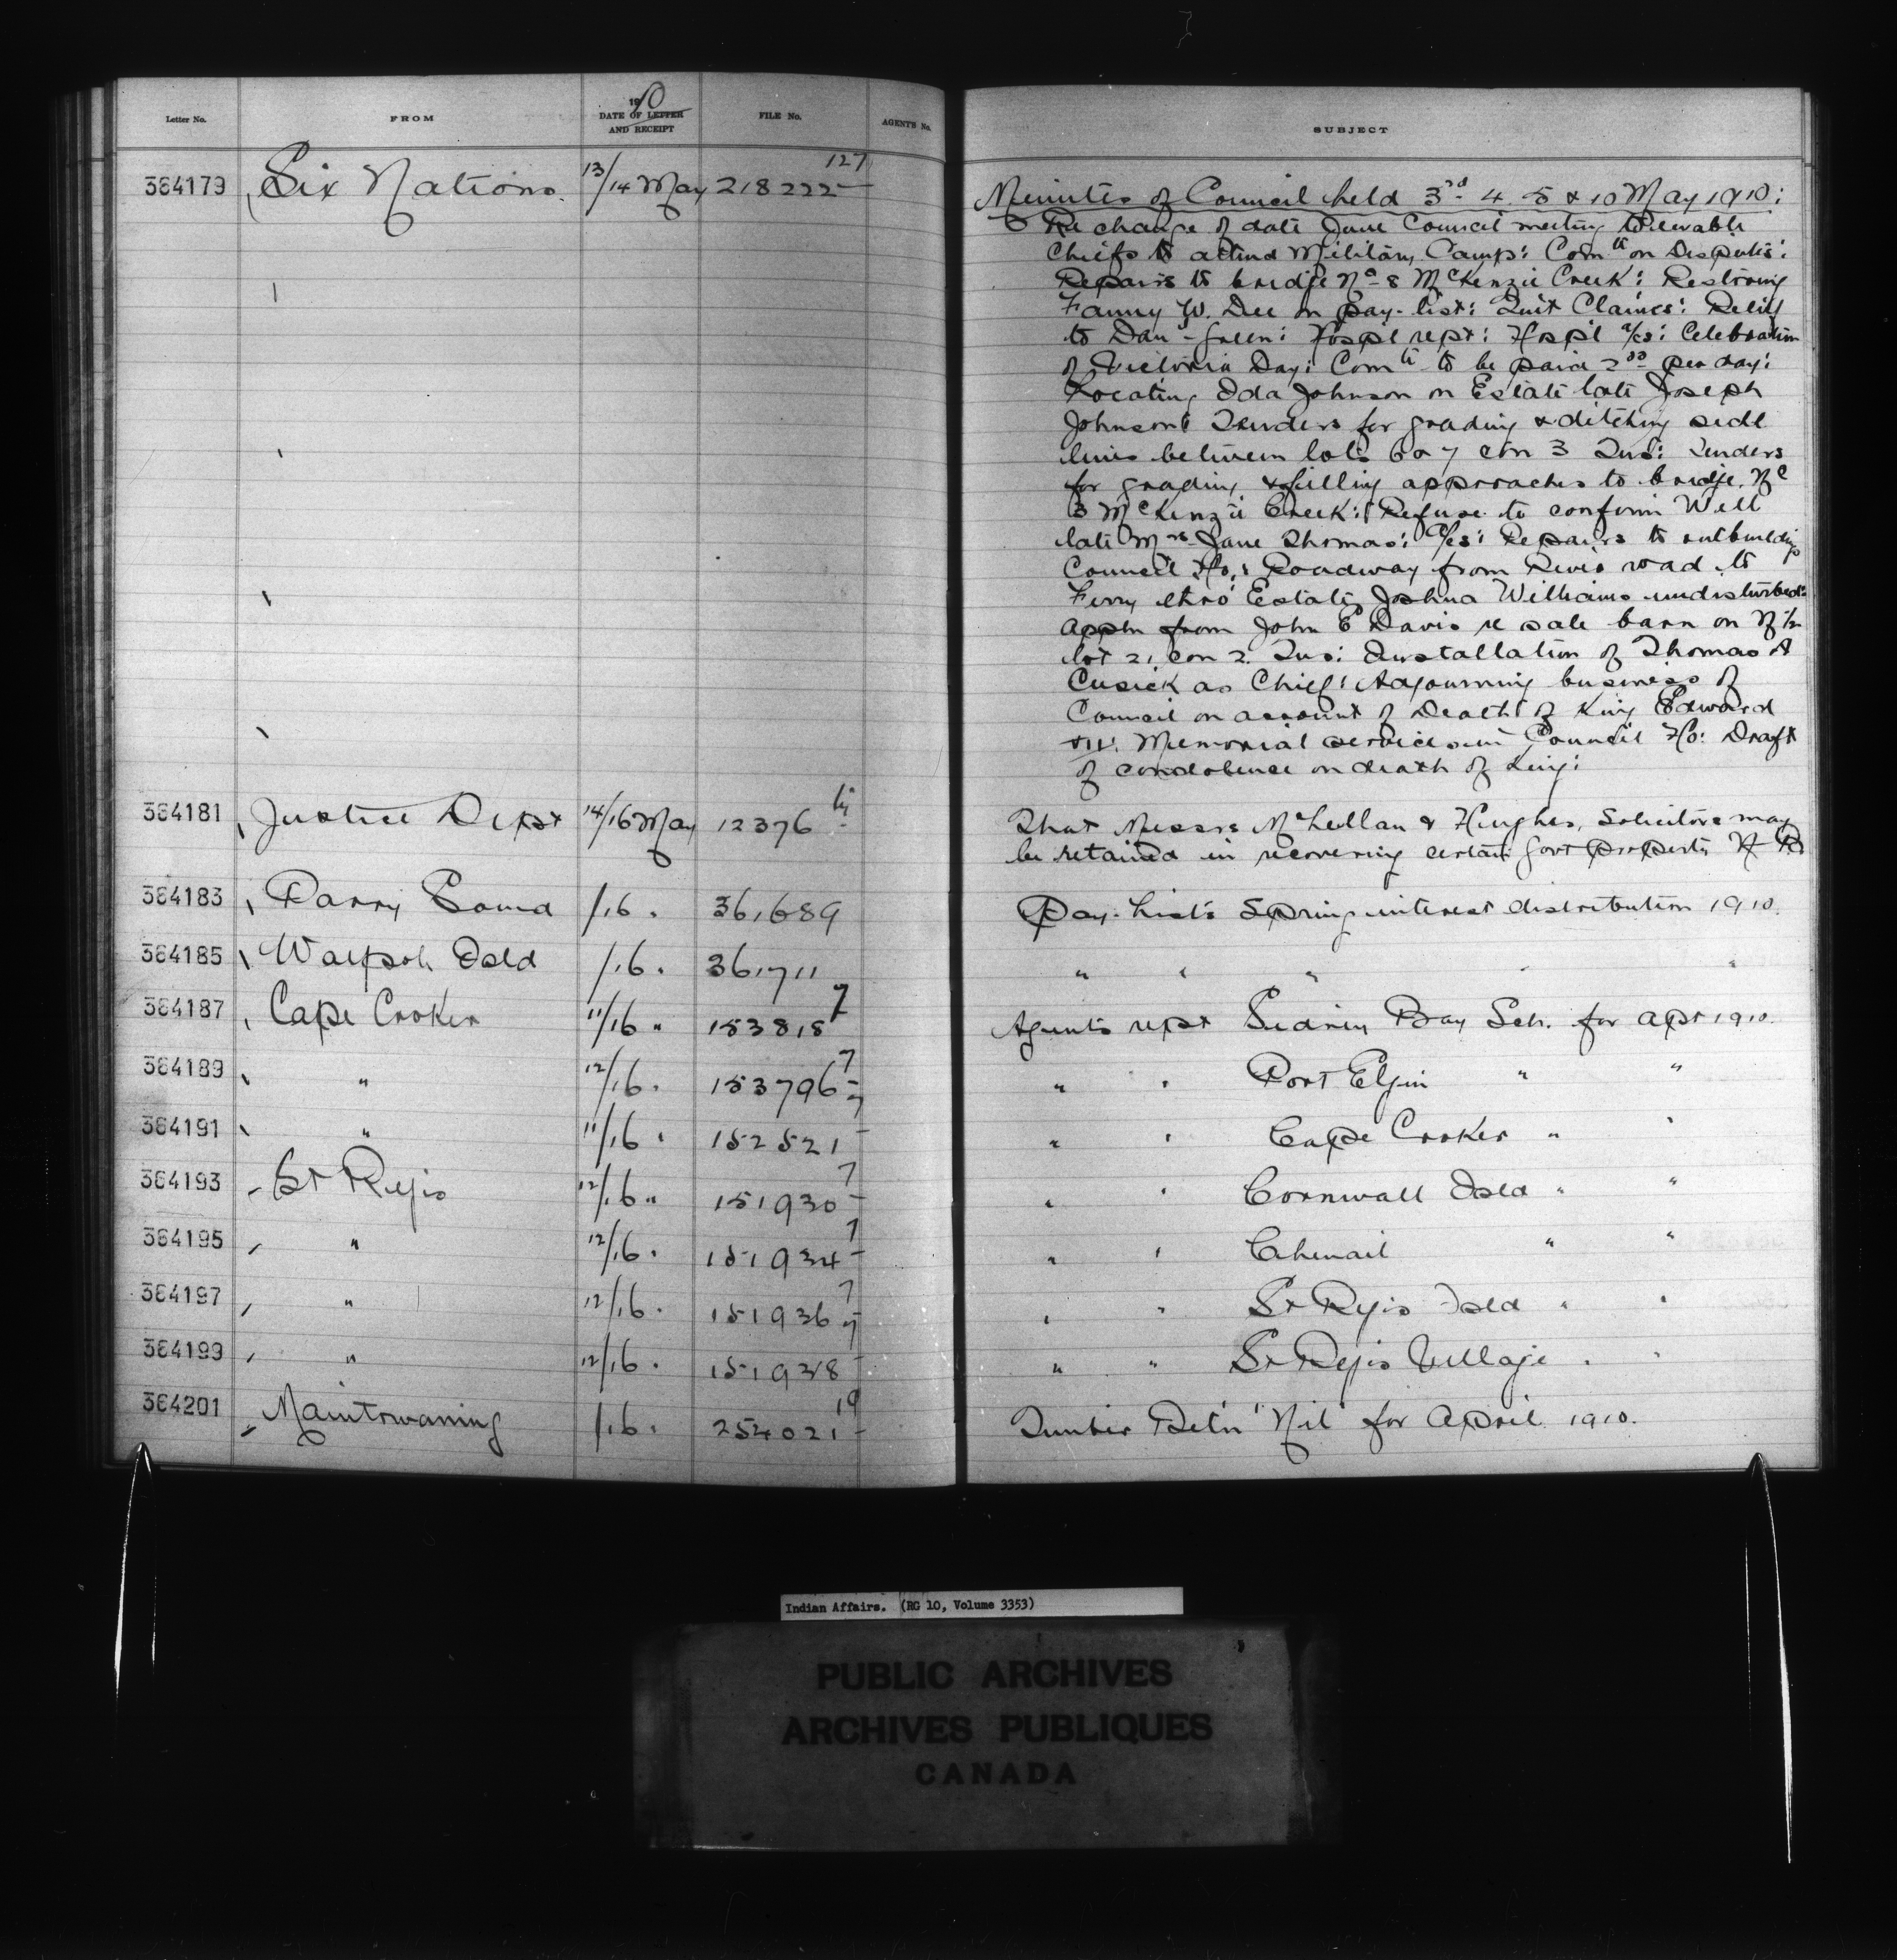 Letter No. FROM 1910 DATE OF LETTER AND RECEIPT FILE No. AGENT'S No. SUBJECT
364179 Six Nations 13/14 May 218222-127 Minutes of Council held 3rd 4. 5 & 10 May 1910:
Re change of date June Council meeting to enable
Chiefs to attend Military Camp: Comte on Disputes:
Repairs to bridge No 8 McKenzie Creek: Restoring
Fanny W. Dee on pay-list: Quit Claims: Relief
to Danl Green: Hospl rept: Hospl a/cs: Celebration
of Victoria Day: Comte to be paid 2.00 per day:
Locating Ida Johnson on Estate late Joseph
Johnson: Tenders for grading & ditching side
line between lots 6 & 7 con 3 Tus: Tenders
for grading & filling approaches to bridge No
3 McKenzie Creek: Refuse to confirm Will
late Mrs Jane Thomas: A/cs: Repairs to outbuildings
Council Ho: Roadway from River road to
Ferry thro' Estate Joshua Williams undisturbed:
Appln from John E Davis re sale barn on N 1/2
lot 21 con 2. Tus: Installation of Thomas A
Cusick as Chief: Adjourning business of
Council on account of Death of King Edward
VII: Memorial services in Council Ho: Draft
of condolence on death of King:
364181 Justice Dept 14/16 May 12376 That Messrs McLellan & Hughes, Solicitors may
be retained in recovering certain Govt property
364183 Parry Sound /16 " 361,689 Pay-Lists Spring interest distribution 1910.
364185 Walpole Isld /16 " 361,711 " " " " "
364187 Cape Croker 11/16 " 153818-7 Agents rept Sidney Bay Sch. for Apr 1910.
364189 " 12/16 " 153796-7 " " Port Elgin " "
364191 " 11/16 " 152521-7 " " Cape Croker " "
364193 St Regis 12/16 " 151930-7 " " Cornwall Isld " "
364195 " 12/16 " 151934-7 " " Chenail " "
364197 " 12/16 " 151936-7 " " St Regis Isld " "
364199 " 12/16 " 151938-7 " " St Regis Village " "
364201 Manitowaning /16 " 254021-19 Timber Retn "Nil" for April 1910.
Indian Affairs. (RG 10, Volume 3353)
PUBLIC ARCHIVES
ARCHIVES PUBLIQUES
CANADA